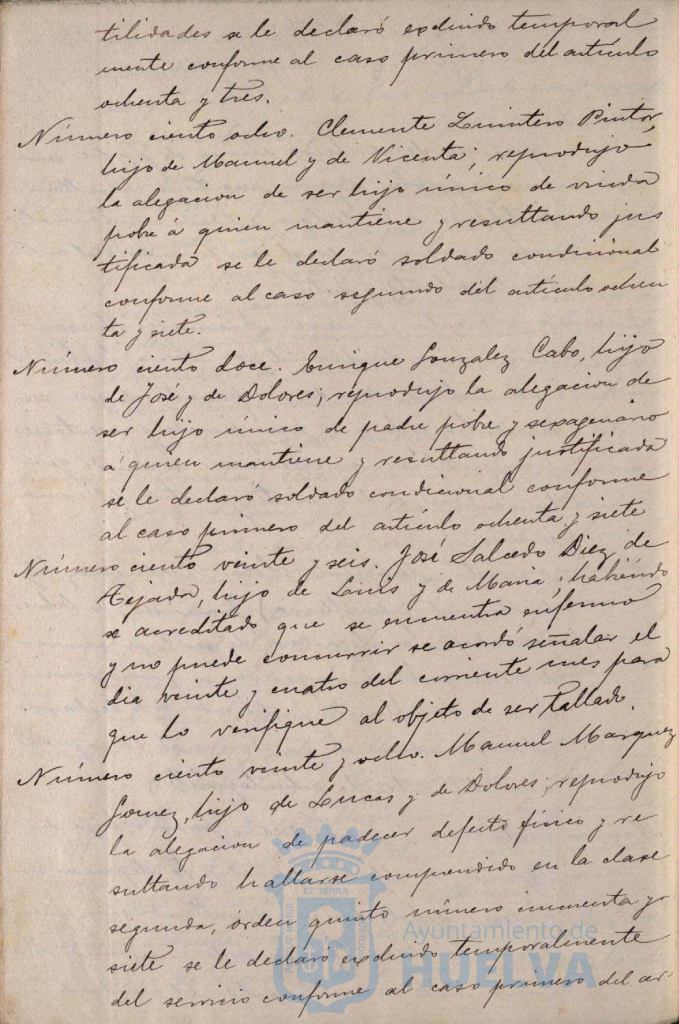 tilidades se le declaró excluido temporal
mente conforme al caso primero del artículo
ochenta y tres.
Número ciento ocho. Clemente Quintero Pintor,
hijo de Manuel y de Vicenta; reprodujo
la alegacion de ser hijo único de viuda
pobre á quien mantiene y resultando jus
tificada se le declaró soldado condicional
conforme al caso segundo del artículo ochen
ta y siete.
Número ciento doce. Enrique Gonzalez Cabo, hijo
de José y de Dolores; reprodujo la alegacion de
ser hijo único de padre pobre y sexagenario
á quien mantiene y resultando justificada
se le declaró soldado condicional conforme
al caso primero del artículo ochenta y siete
Número ciento veinte y seis. José Salcedo Diez de
Tejada, hijo de Luis y de Maria; habiendo
se acreditado que se encuentra enfermo
y no puede concurrir se acordó señalar el
dia veinte y cuatro del corriente mes para
que lo verifique al objeto de ser tallado.
Número ciento veinte y ocho. Manuel Marquez
Gomez, hijo de Lucas y de Dolores; reprodujo
la alegacion de padecer defecto físico y re
sultando hallarse comprendido en la clase
segunda, órden quinto número cincuenta y
siete se le declaró excluido temporalmente
del servicio conforme al caso primero del ar
ET TERRÆ
Ayuntamiento de
HUELVA